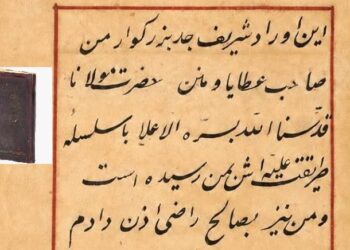 این اوراد شریف جد بزرگوار من
صاحب عطایا و منن حضرت مولانا
قدسنا الله بسره الاعلا با سلسله
طریقت علیه اش بمن رسیده است
و من نیز بصالح راضی اذن دادم